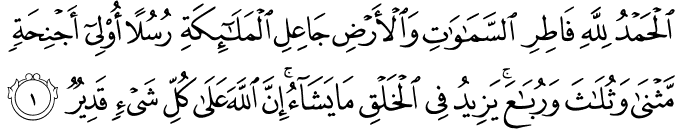 ٱلۡحَمۡدُ لِلَّهِ فَاطِرِ ٱلسَّمَٰوَٰتِ وَٱلۡأَرۡضِ جَاعِلِ ٱلۡمَلَٰٓئِكَةِ رُسُلًا أُوْلِيٓ أَجۡنِحَةٖ
مَّثۡنَىٰ وَثُلَٰثَ وَرُبَٰعَۚ يَزِيدُ فِي ٱلۡخَلۡقِ مَا يَشَآءُۚ إِنَّ ٱللَّهَ عَلَىٰ كُلِّ شَيۡءٖ قَدِيرٞ ١